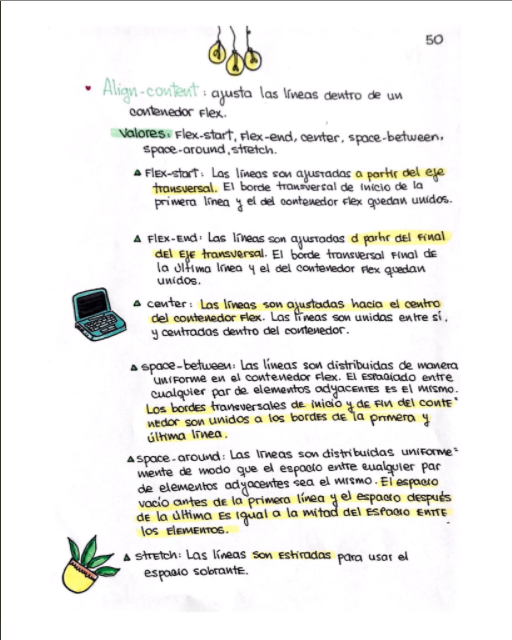 50
Align-content: ajusta las líneas dentro de un
contenedor Flex.
Valores: Flex-start, Flex-end, center, space-between,
space-around, stretch.
Flex-start: Las líneas son ajustadas a partir del eje
transversal. El borde transversal de inicio de la
primera línea y el del contenedor Flex quedan unidos.
Flex-End: Las líneas son ajustadas a partir del final
del eje transversal. El borde transversal final de
la última línea y el del contenedor Flex quedan
unidos.
center: Las líneas son ajustadas hacia el centro
del contenedor Flex. Las líneas son unidas entre sí,
y centradas dentro del contenedor.
space-between: Las líneas son distribuidas de manera
uniforme en el contenedor Flex. El espaciado entre
cualquier par de elementos adyacentes es el mismo.
Los bordes transversales de inicio y de fin del conte-
nedor son unidos a los bordes de la primera y
última línea.
space-around: Las líneas son distribuidas uniforme-
mente de modo que el espacio entre cualquier par
de elementos adyacentes sea el mismo. El espacio
vacío antes de la primera línea y el espacio después
de la última es igual a la mitad del espacio entre
los elementos.
stretch: Las líneas son estiradas para usar el
espacio sobrante.